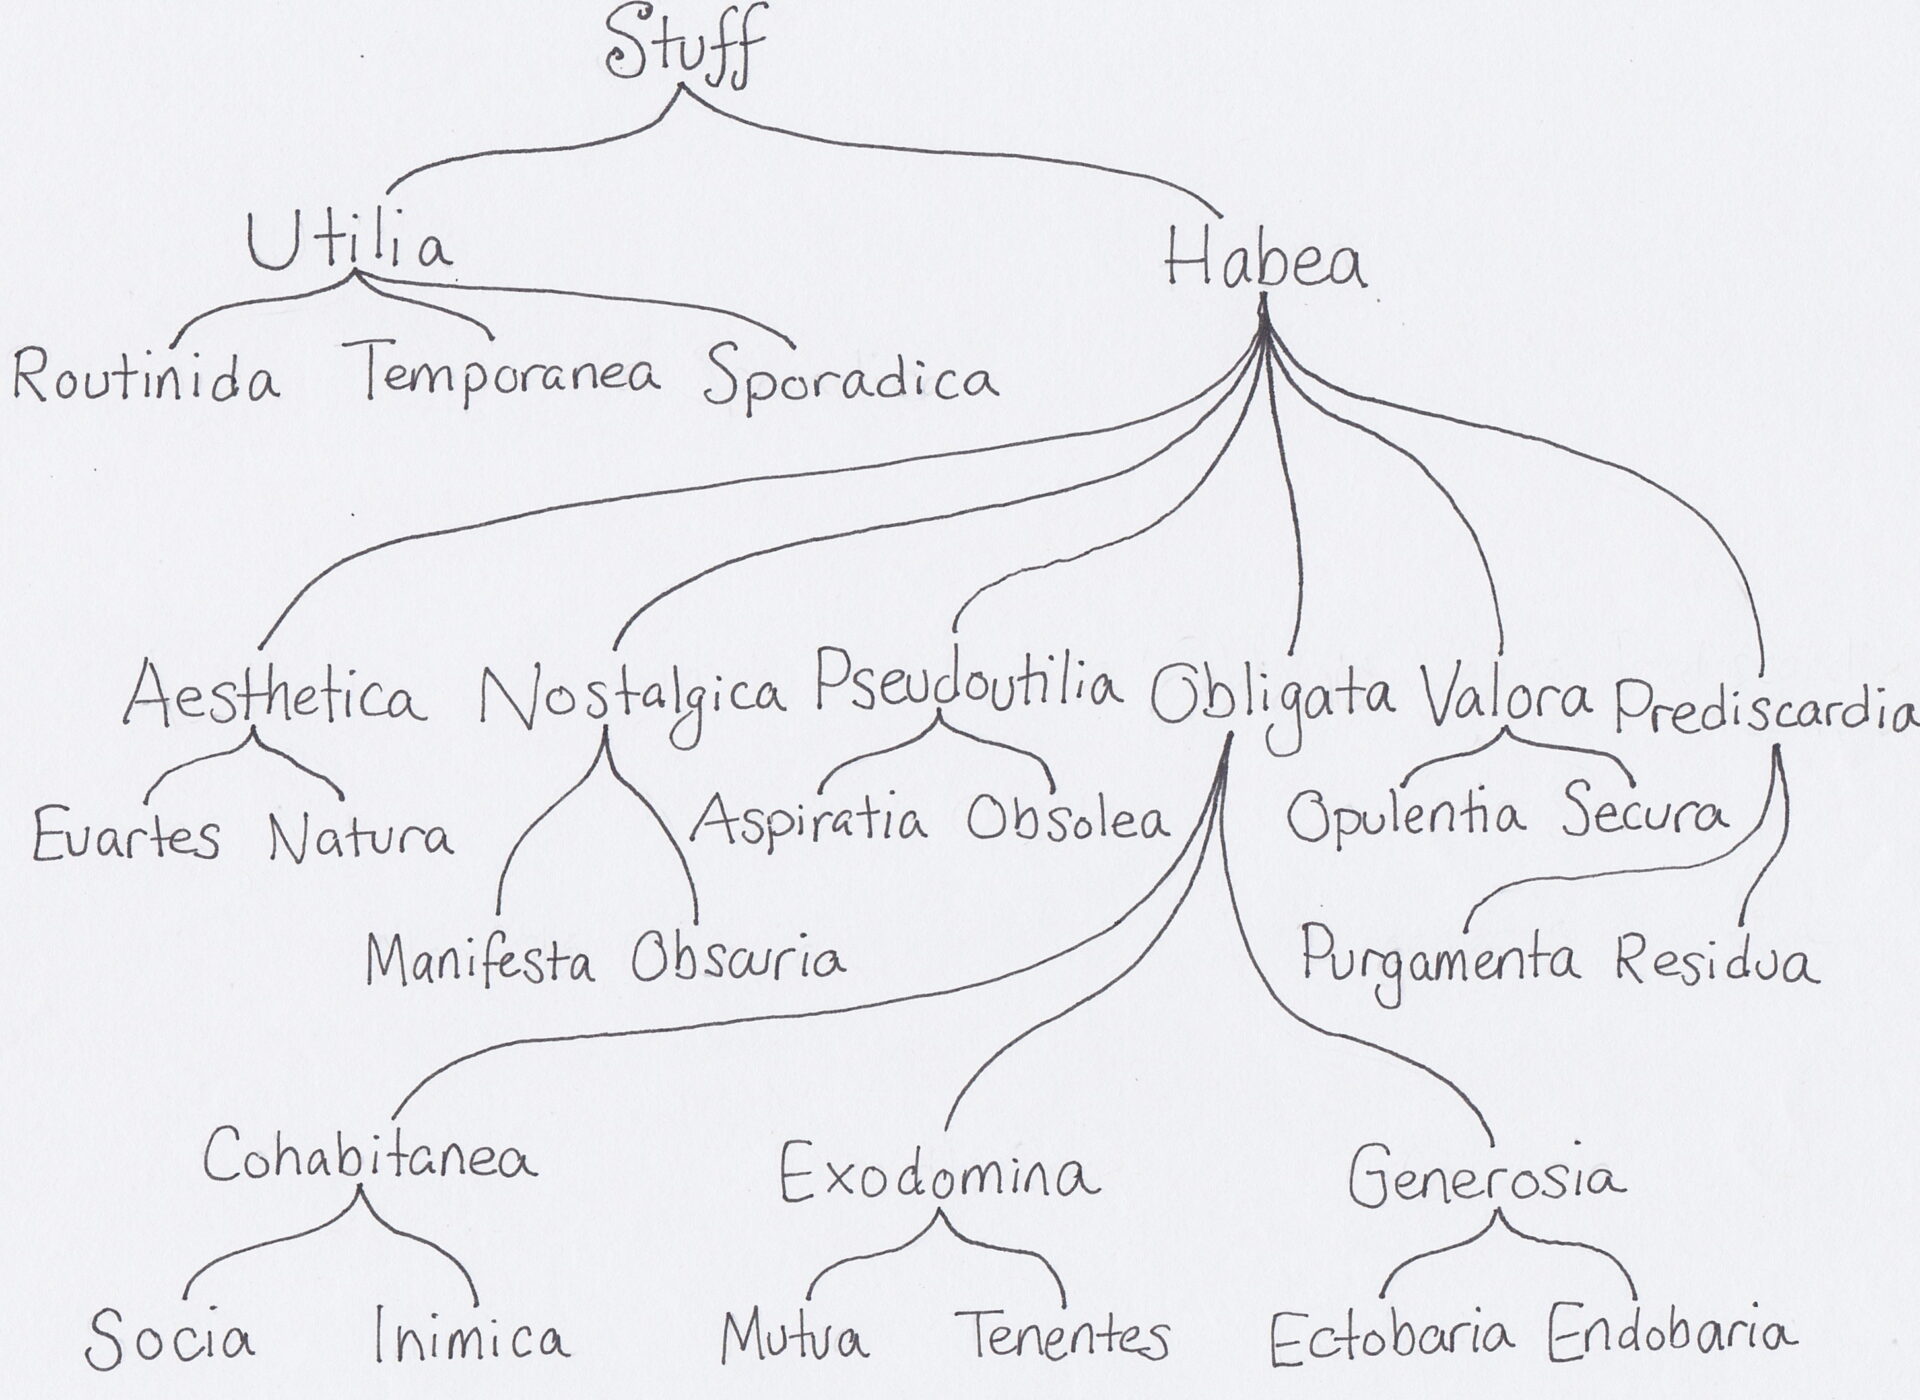 Stuff
Utilia
Habea
Routinida Temporanea Sporadica
Aesthetica Nostalgica Pseudoutilia Obligata Valora Prediscardia
Euartes Natura Aspiratia Obsolea Opulentia Secura
Manifesta Obscuria Purgamenta Residua
Cohabitanea Exodomina Generosia
Socia Inimica Mutua Tenentes Ectobaria Endobaria